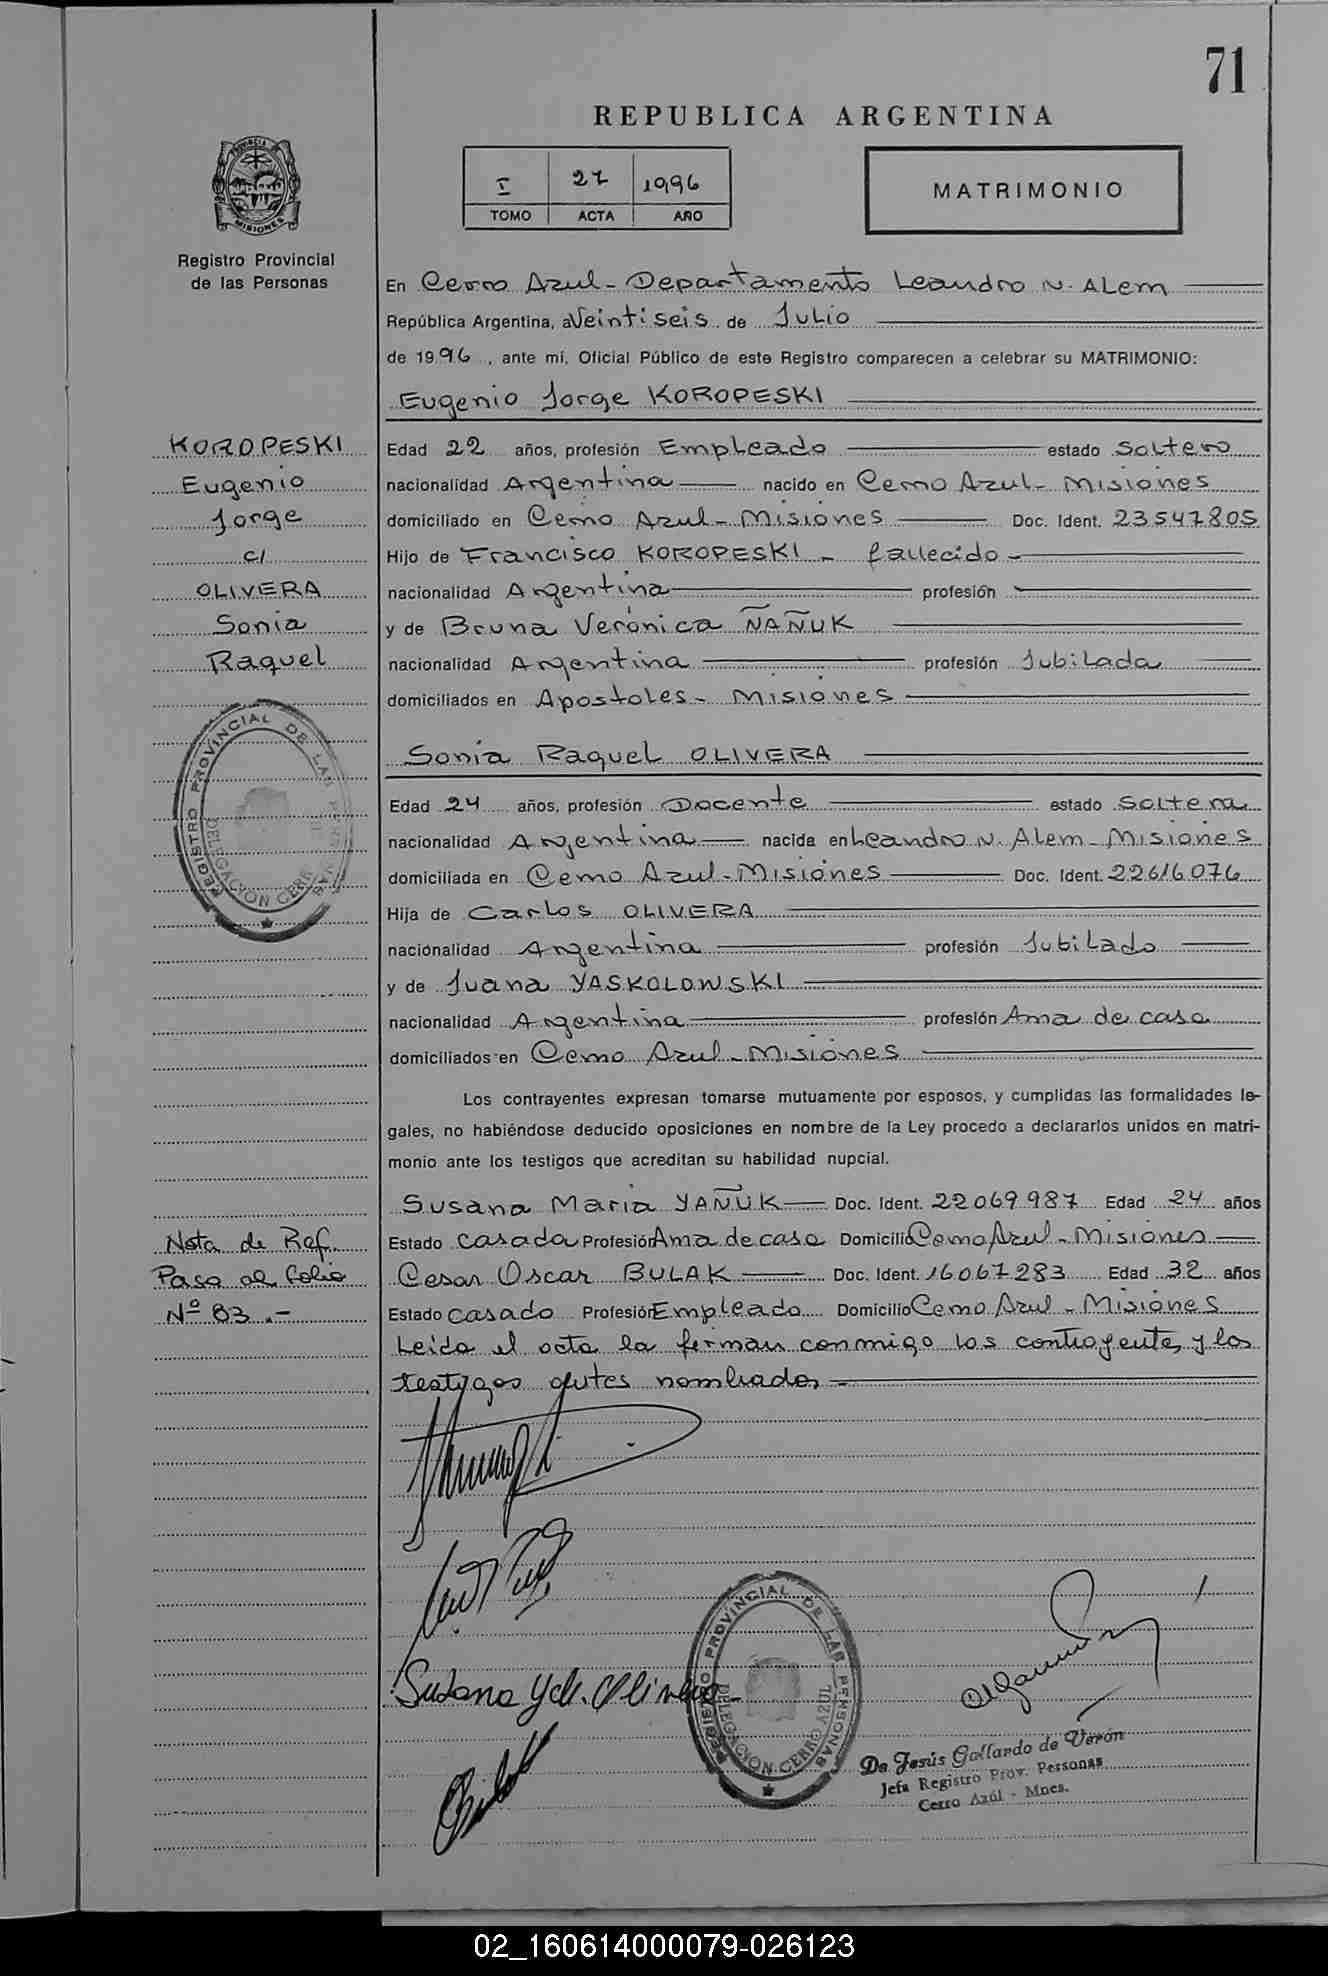 71
REPUBLICA ARGENTINA
PROVINCIA DE
MISIONES
Registro Provincial
de las Personas
I 27 1996
TOMO ACTA AÑO
MATRIMONIO
En Cerro Azul - Departamento Leandro N. Alem
República Argentina, a Veintiseis de Julio
de 1996, ante mí, Oficial Público de este Registro comparecen a celebrar su MATRIMONIO:
Eugenio Jorge KOROPESKI
KOROPESKI
Eugenio
Jorge
c/
OLIVERA
Sonia
Raquel
Edad 22 años, profesión Empleado estado Soltero
nacionalidad Argentina nacido en Cerro Azul - Misiones
domiciliado en Cerro Azul - Misiones Doc. Ident. 23547805
Hijo de Francisco KOROPESKI - fallecido -
nacionalidad Argentina profesión
y de Bruna Verónica ÑAÑUK
nacionalidad Argentina profesión Jubilada
domiciliados en Apostoles - Misiones
Sonia Raquel OLIVERA
Edad 24 años, profesión Docente estado Soltera
nacionalidad Argentina nacida en Leandro N. Alem - Misiones
domiciliada en Cerro Azul - Misiones Doc. Ident. 22616076
Hija de Carlos OLIVERA
nacionalidad Argentina profesión Jubilado
y de Juana YASKOLOWSKI
nacionalidad Argentina profesión Ama de casa
domiciliados en Cerro Azul - Misiones
REGISTRO PROVINCIAL DE LAS PERSONAS
DELEGACION CERRO
Los contrayentes expresan tomarse mutuamente por esposos, y cumplidas las formalidades le-
gales, no habiéndose deducido oposiciones en nombre de la Ley procedo a declararlos unidos en matri-
monio ante los testigos que acreditan su habilidad nupcial.
Susana Maria YAÑUK Doc. Ident. 22069987 Edad 24 años
Estado casada Profesión Ama de casa Domicilio Cerro Azul - Misiones
Cesar Oscar BULAK Doc. Ident. 16067283 Edad 32 años
Estado casado Profesión Empleado Domicilio Cerro Azul - Misiones
Leída el acta la firman conmigo los contrayentes y los
testigos antes nombrados -
Nota de Ref.
Pasa al folio
Nº 83.-
Susana Y de Olivera
REGISTRO PROVINCIAL DE LAS PERSONAS
DELEGACION CERRO AZUL
De Jesús Gallardo de Verón
Jefa Registro Prov. Personas
Cerro Azul - Mnes.
02_160614000079-026123